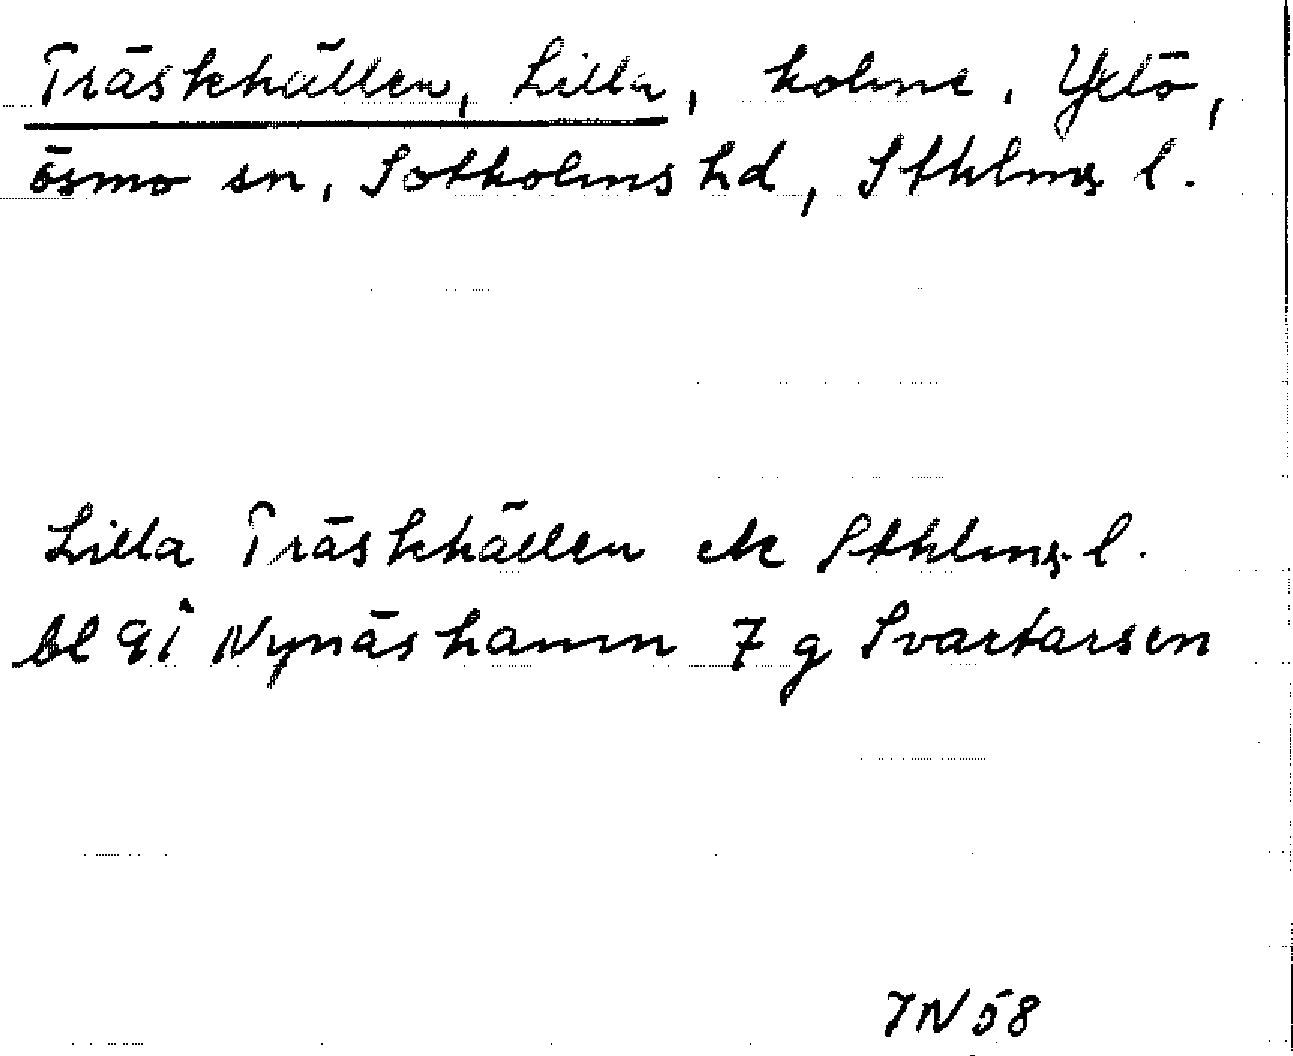 Träskhällen, Lilla, holme, Yxlö,
Ösmo sn, Sotholms hd, Sthlms l.
Lilla Träskhällen ek Sthlms l.
bl 9 i Nynäshamn 7 g Svartarsen
JN 58